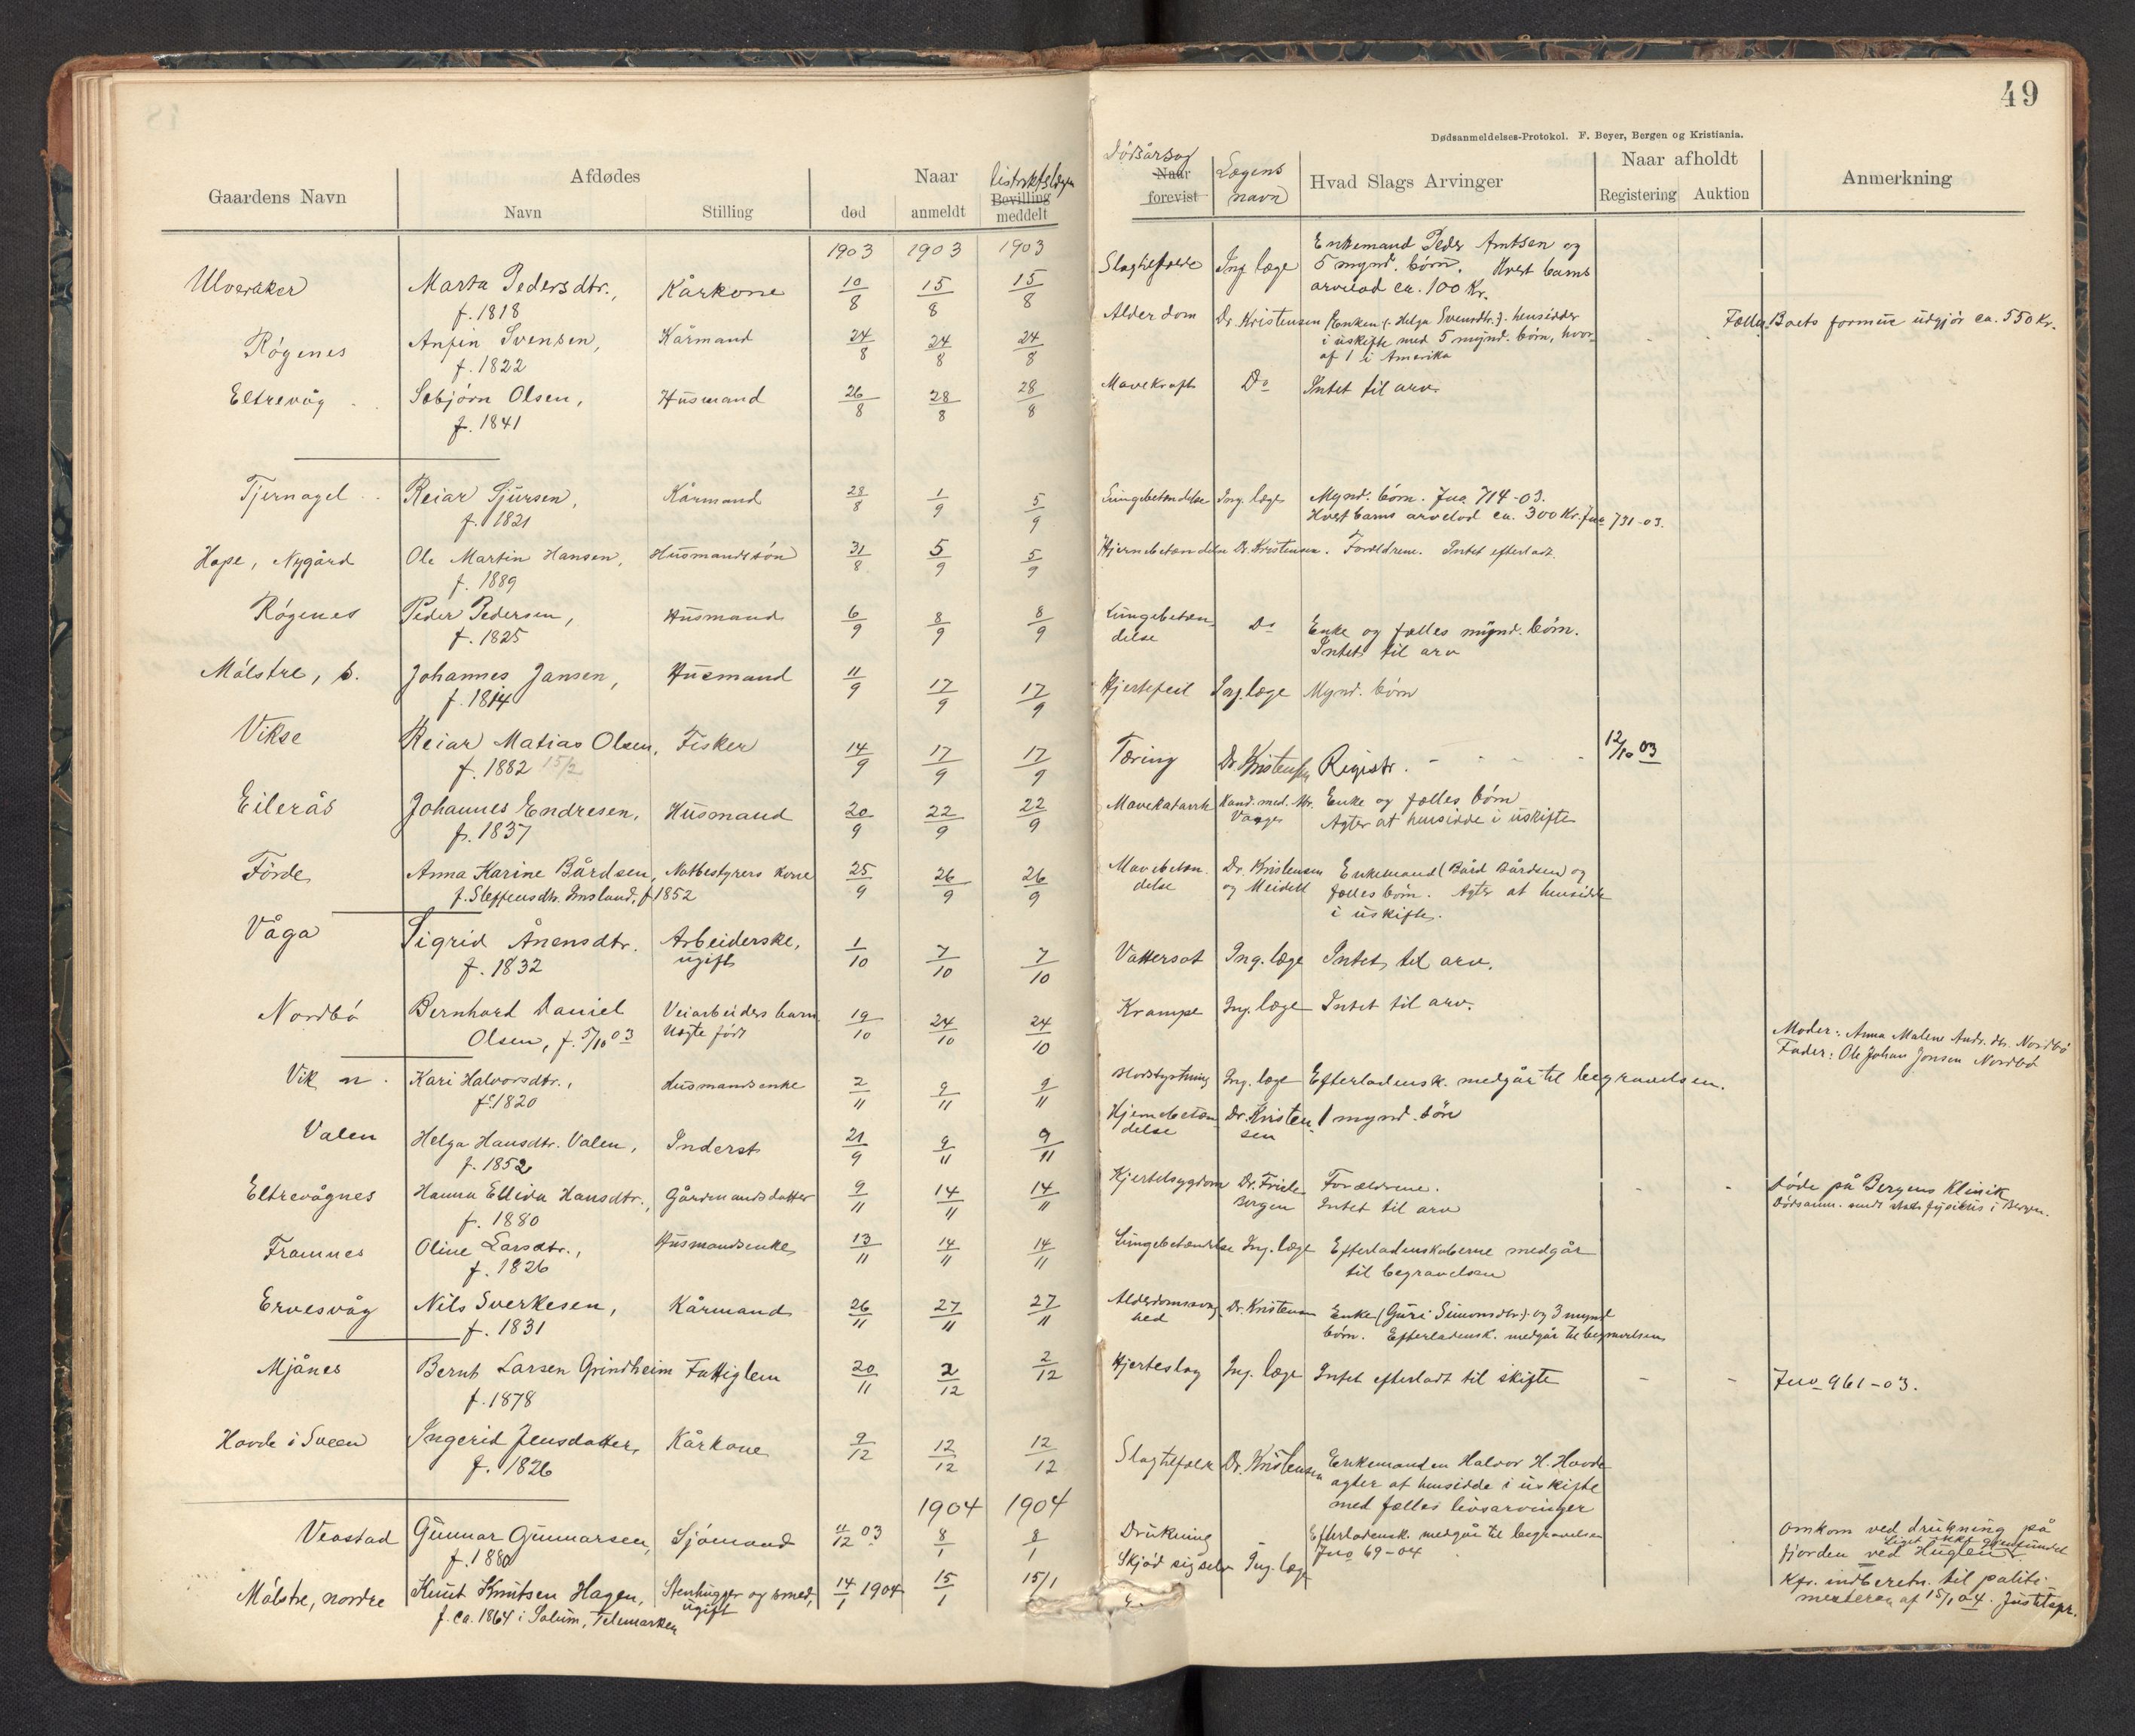 49
Dødsanmeldelses-Protokol. F. Beyer, Bergen og Kristiania.
Gaardens Navn
Afdødes
Navn
Stilling
Naar
død
anmeldt
Bevilling
meddelt
Dødsårsag
Naar
forevist
Lægens
navn
Hvad Slags Arvinger
Naar afholdt
Registering
Auktion
Anmerkning
1903 1903 1903
Ulveraker Marta Pedersdtr., Kårkone 10/8 15/8 15/8 Slagtilfælde Ing. læge Enkemand Peder Arntsen og
f. 1818 5 mynd. børn. Hvert barns
arvelod ca. 100 Kr.
Røgenes Anfin Svensen, Kårmand 24/8 24/8 24/8 Alderdom Dr. Kristensen Enken (Helga Svensdtr.) hensidder Fælles Boets formue udgjør ca. 550 Kr.
f. 1822 i uskifte med 5 mynd. børn, hvor-
af 1 i Amerika
Eltrevåg Sebjørn Olsen, Husmand 26/8 28/8 28/8 Mavekræft Do Intet til arv.
f. 1841
Tjernagel Reiar Sjursen, Kårmand 28/8 1/9 5/9 Lungebetændelse Ing. læge Mynd. børn. Jno 714-03.
f. 1821 Hvert barns arvelod ca. 300 Kr. Jno 731-03.
Hope, Nygård Ole Martin Hansen, Husmandssøn 31/8 5/9 5/9 Hjernebetændelse Dr. Kristensen. Forældrene. Intet efterladt.
f. 1889
Røgenes Peder Pedersen, Husmand 6/9 8/9 8/9 Lungebetæn- Do Enke og fælles mynd. børn.
f. 1825 delse Intet til arv
Mølstre, s. Johannes Jansen, Husmand 11/9 17/9 17/9 Hjertefeil Ing. læge Mynd. børn
f. 1814
Vikse Reiar Matias Olsen, Fisker 14/9 17/9 17/9 Tæring Dr. Kristensen Registr. 12/10 03
f. 1882 15/2
Eilerås Johannes Endresen, Husmand 20/9 22/9 22/9 Mavekatarrh Kand. med. Enke og fælles børn
f. 1837 Agter at hensidde i uskifte
Førde Anna Karine Bårdsen, Notbestyrers kone 25/9 26/9 26/9 Mavebetæn- Dr. Kristensen Enkemand (Bård Bårdsen) og
f. Steffensdtr. Imsland, f 1852 delse og Meidell fælles børn. Agter at hensidde
i uskifte.
Våga Sigrid Ånensdtr. Arbeiderske, 1/10 7/10 7/10 Vattersot Ing. læge Intet til arv.
f. 1832 ugift
Nordbø Bernhard Daniel Veiarbeiders barn 19/10 24/10 24/10 Krampe Ing. læge Intet til arv. Moder: Anna Malene Andr. dtr. Nordbø
Olsen, f. 5/10 03 uægte født Fader: Ole Johan Jonsen Nordbø
Vik n. Kari Halvorsdtr., Husmandsenke 2/11 9/11 9/11 Ing. læge Efterladensk. medgår til begravelsen.
f. 1820
Valen Helga Hansdtr. Valen, Inderst 21/9 9/11 9/11 Hjernebetæn- Dr. Kristen- 1 mynd. søn
f. 1852 delse sen
Eltrevågnes Hanna Ellida Hansdtr., Gårdmandsdatter 9/11 14/11 14/11 Kjertelsygdom Dr. Friele Forældrene. Døde på Bergens Klinik
f. 1880 Bergen Intet til arv Dødsanm. sendt stadsfysikus i Bergen.
Framnes Oline Larsdtr., Husmandsenke 13/11 14/11 14/11 Lungebetændelse Ing. læge Efterladenskaberne medgår
f. 1826 til begravelsen
Ervesvåg Nils Sverkesen, Kårmand 26/11 27/11 27/11 Alderdomssvag- Dr. Kristensen Enke (Guri Simonsdtr.) og 3 mynd
f. 1831 hed børn. Efterladensk. medgår til begravelsen
Mjånes Bernt Larsen Grindheim Fattiglem 20/11 2/12 2/12 Hjerteslag Ing. læge Intet efterladt til skifte Jno 961-03.
f. 1878
Hovde i Sveen Ingerid Jensdatter, Kårkone 9/12 12/12 12/12 Slagtilfælde Dr. Kristensen Enkemanden Halvor H. Hovde
f. 1826 agter at hensidde i uskifte
med fælles livsarvinger
1904 1904
Veastad Gunnar Gunnarsen, Sjømand 11/12 03 8/1 8/1 Drukning - Efterladensk. medgår til begravelsen Omkom ved drukning på
f. 1880 Jno 69-04 fjorden ved Huglen. Liget ikke gjenfundet
Mølstre, nordre Knut Knutsen Hagen, Stenhugger og smed, 14/1 1904 15/1 15/1 Skjød sig selv Ing. læge Kfr. indberetn. til politi-
f. ca. 1864 i Solum, Telemarken ugift mesteren af 15/1 04. Justitspr.